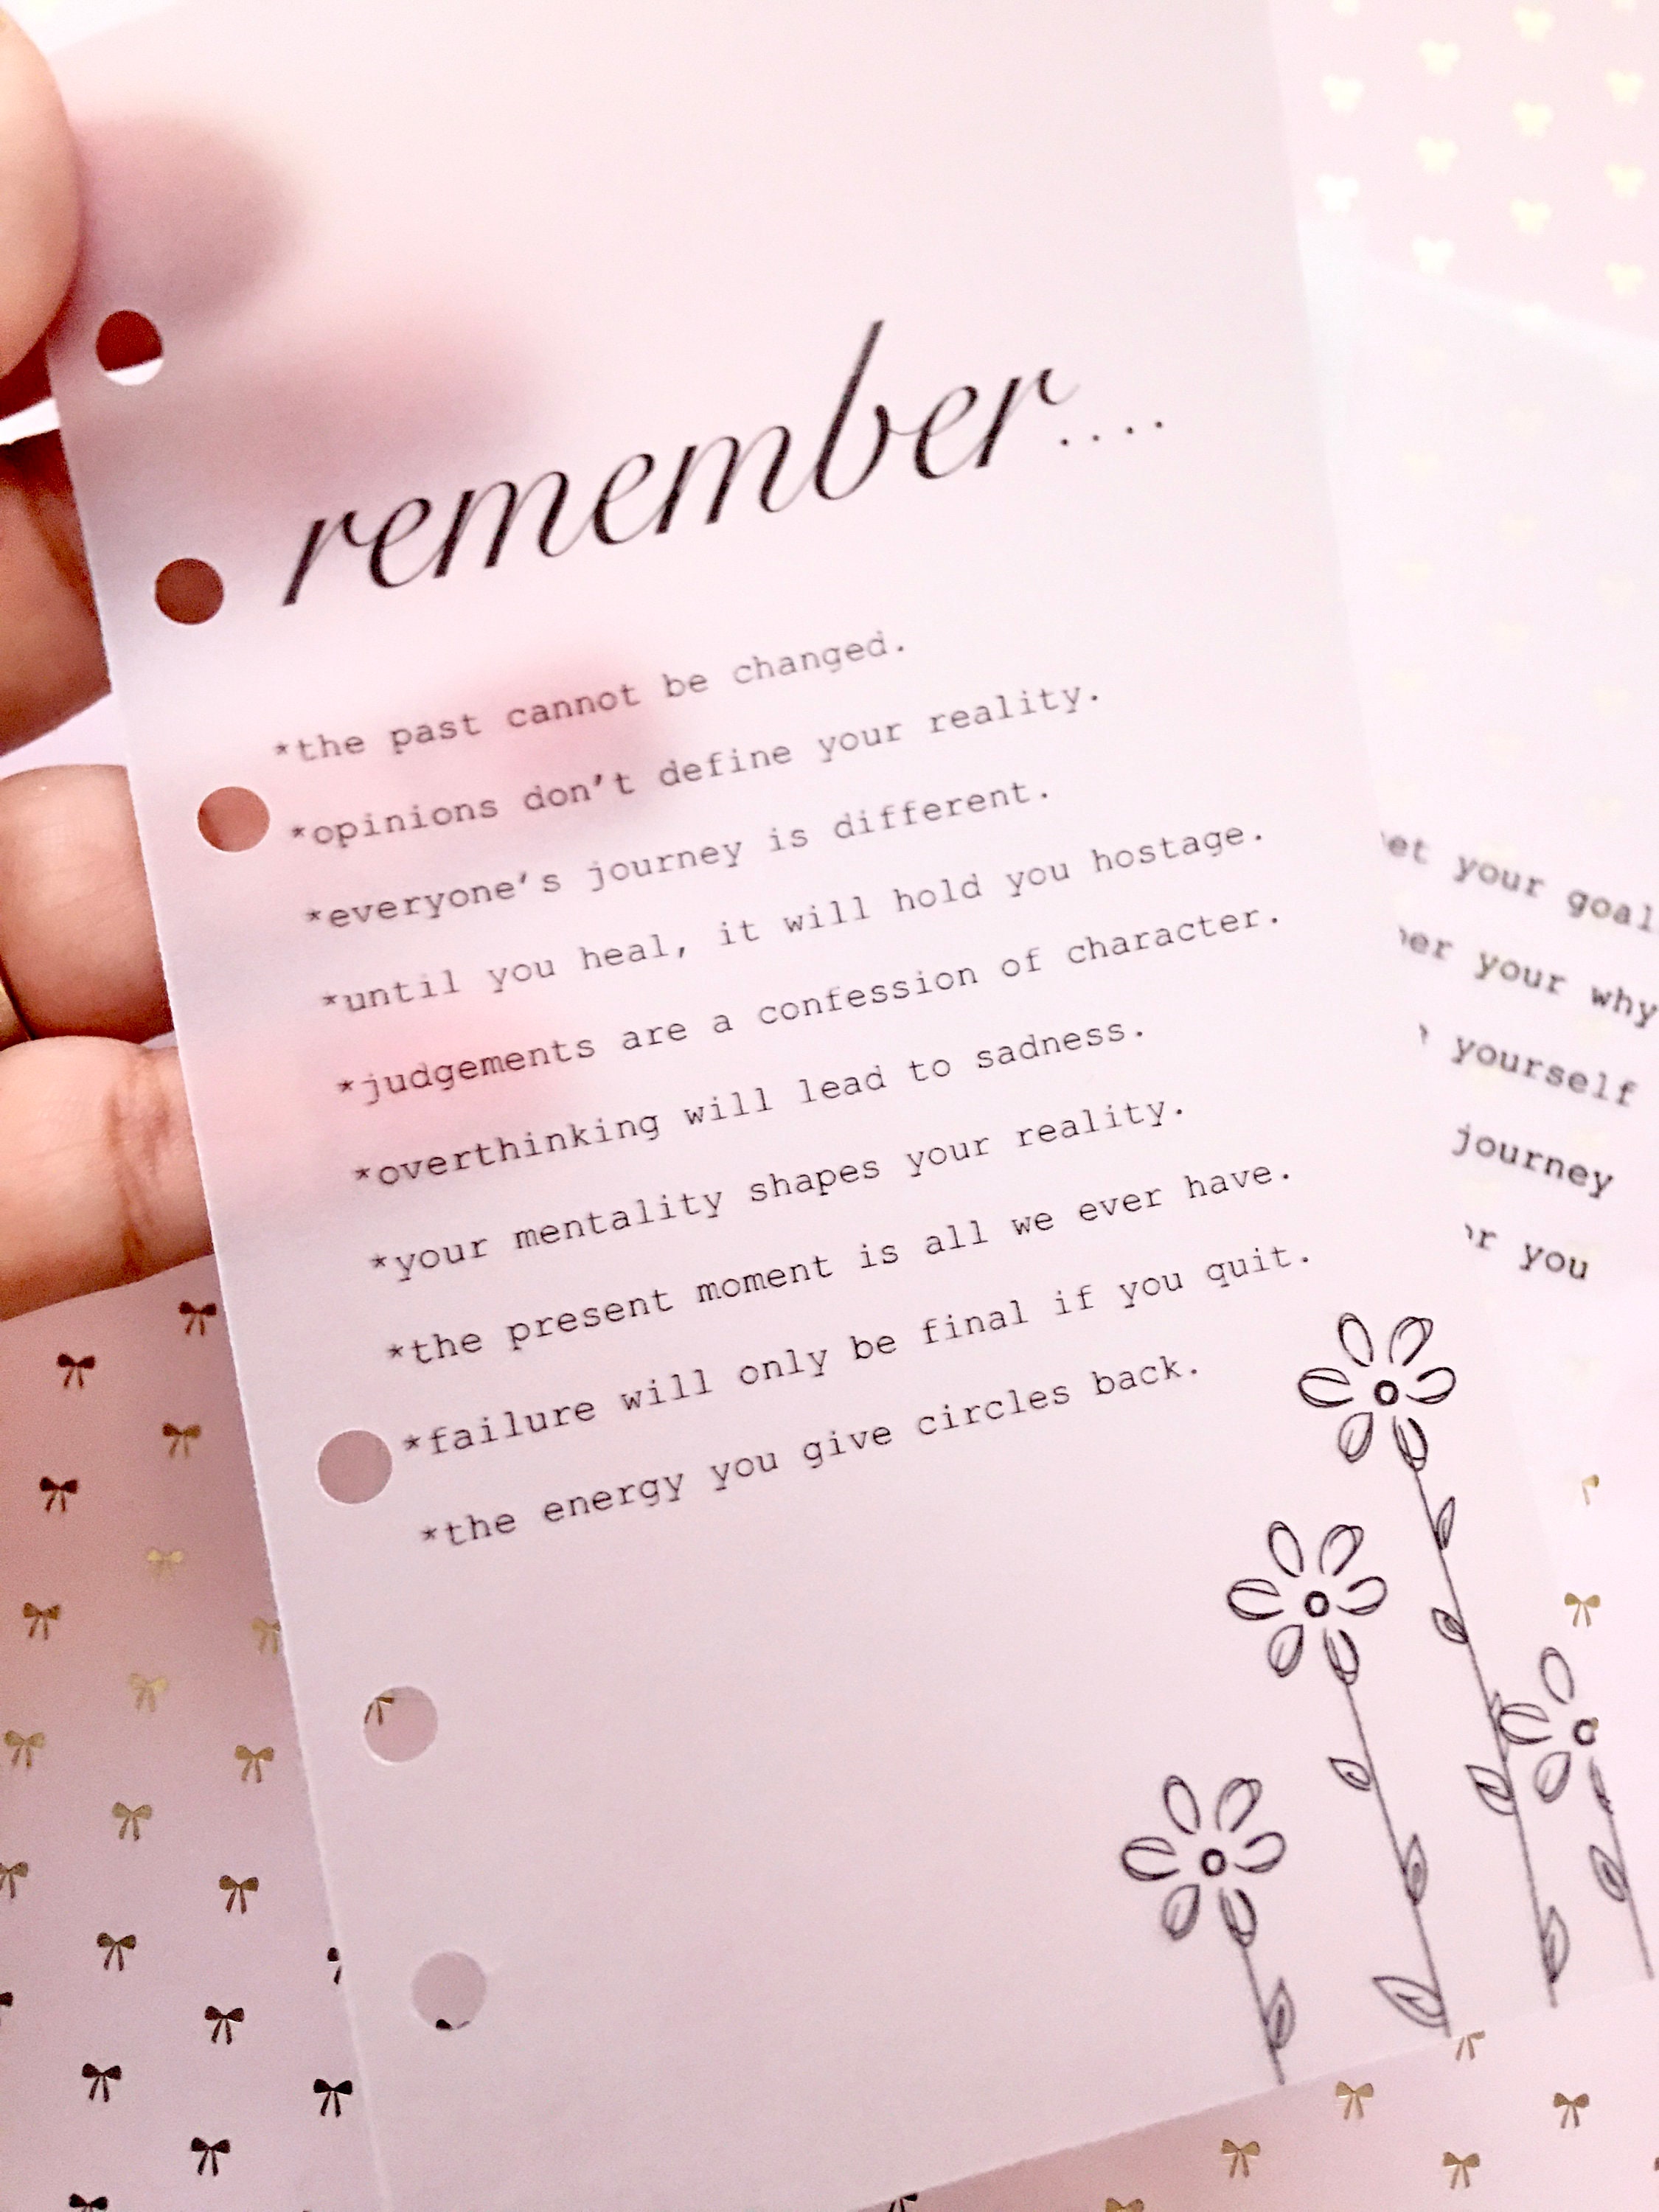 remember....
*the past cannot be changed.
*opinions don't define your reality.
*everyone's journey is different.
*until you heal, it will hold you hostage.
*judgements are a confession of character.
*overthinking will lead to sadness.
*your mentality shapes your reality.
*the present moment is all we ever have.
*failure will only be final if you quit.
*the energy you give circles back.
your
your why
yourself
journey
you